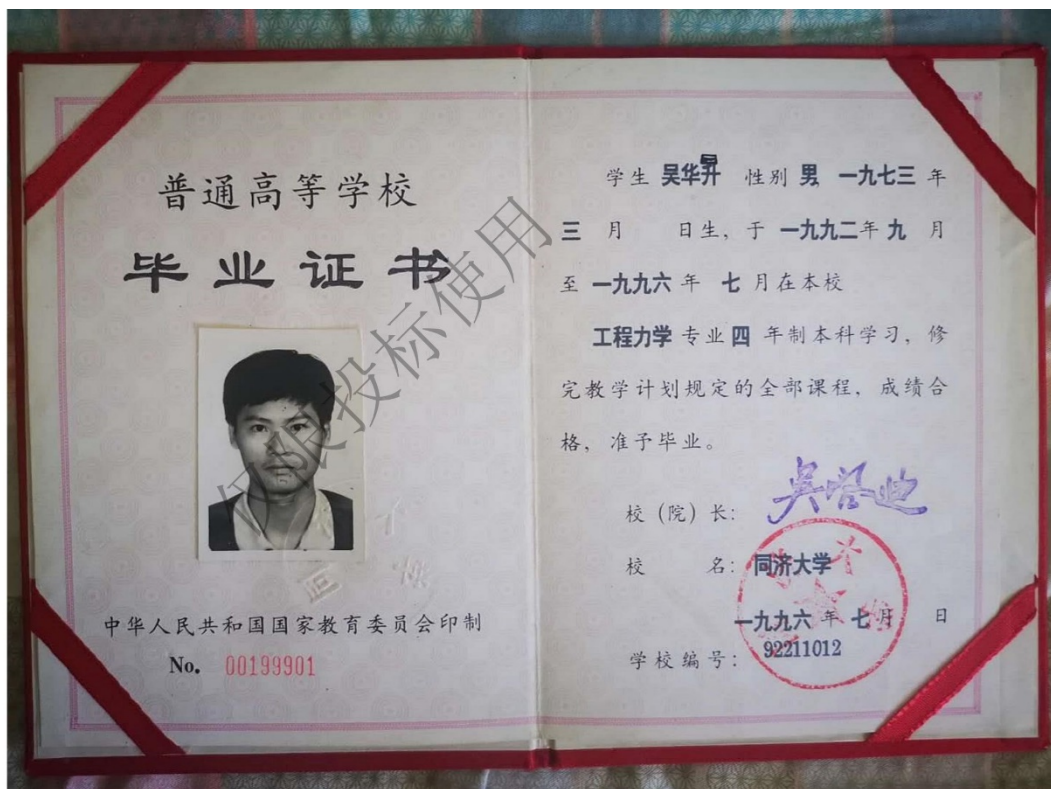 普通高等学校
毕业证书
中华人民共和国国家教育委员会印制
No. 00199901
学生 吴华昇 性别 男 一九七三 年
三 月 日生, 于 一九九二 年 九 月
至 一九九六 年 七 月在本校
工程力学 专业 四 年制本科学习, 修
完教学计划规定的全部课程, 成绩合
格, 准予毕业。
校 (院) 长: 吴启迪
校 名: 同济大学
一九九六 年 七 月 日
学校编号: 92211012
仅限投标使用